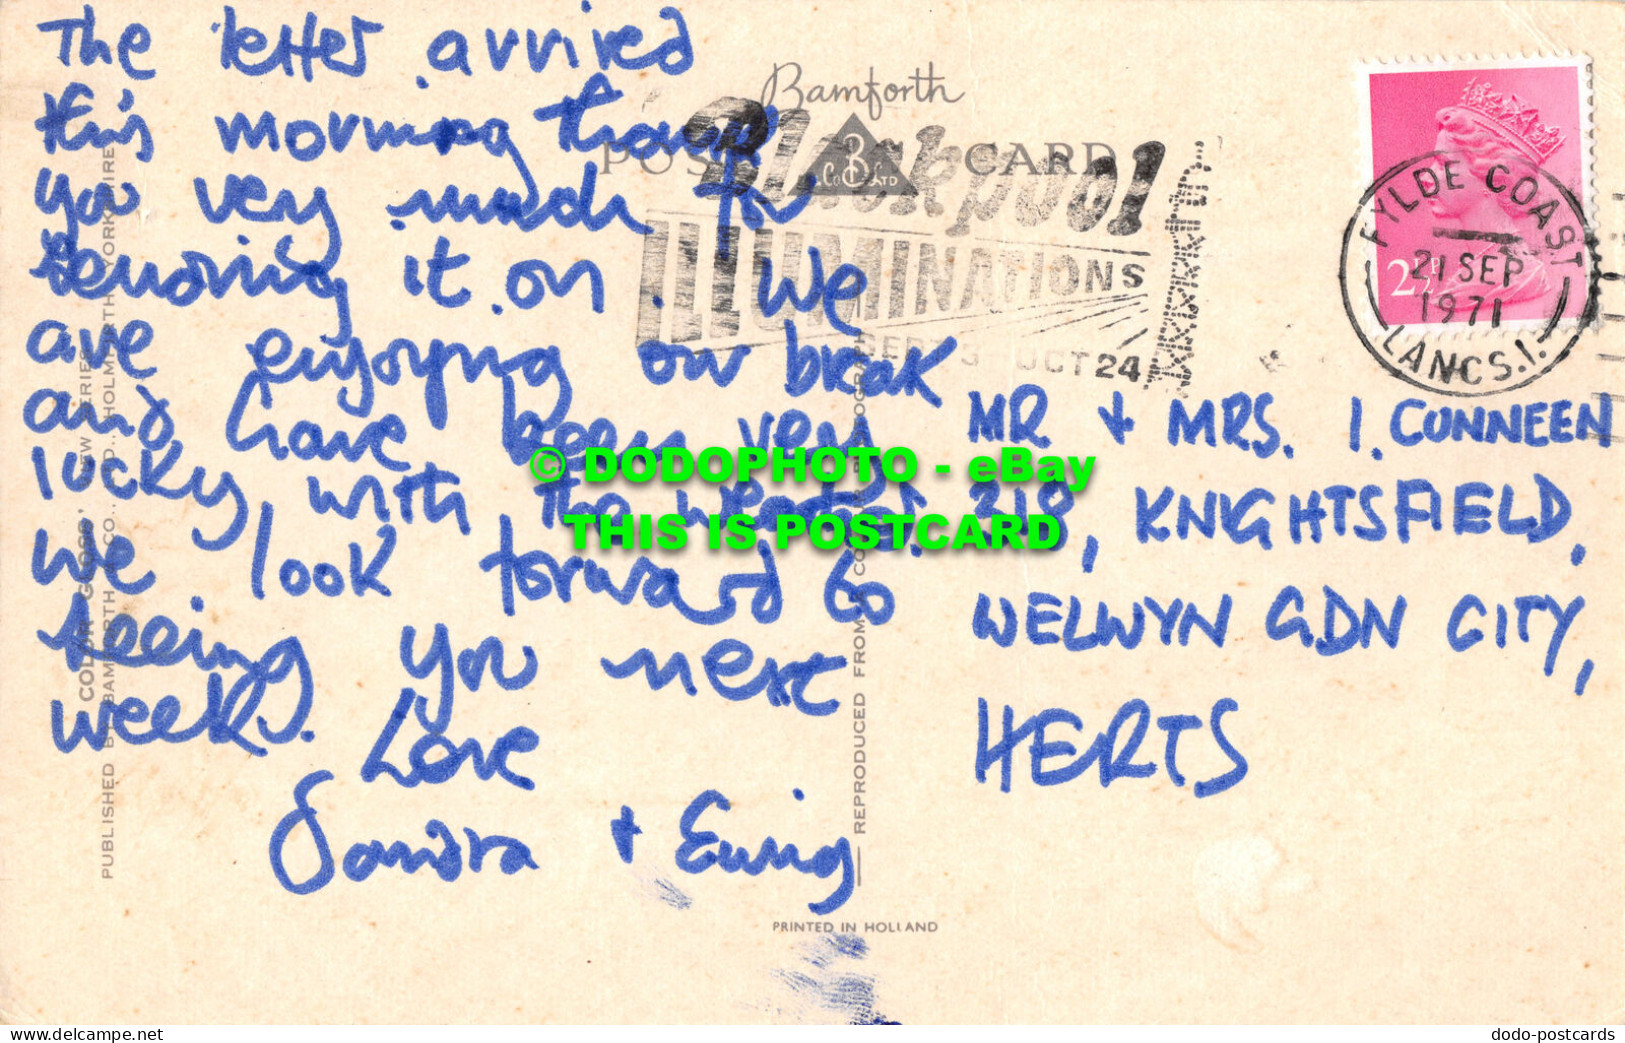 The letter arrived
this morning thank
you very much for
sending it on. We
are enjoying our break
and have been very
lucky, with the weather.
we look forward to
seeing you next
week.
Love
Sandra + Ewing
MR + MRS. I. CONNEEN
218, KNIGHTSFIELD,
WELWYN GDN CITY,
HERTS
Bamforth
POST CARD
B
Co LTD
Blackpool
ILLUMINATIONS
SEPT 3 OCT 24
FYLDE COAST
21 SEP
1971
LANCS. I.
2½P
© DODOPHOTO - eBay
THIS IS POSTCARD
COLOR GLOSS' NEW SERIES
PUBLISHED BY BAMFORTH & CO., LTD., HOLMFIRTH, YORKSHIRE
REPRODUCED FROM A COLOUR PHOTOGRAPH
PRINTED IN HOLLAND
www.delcampe.net
dodo-postcards